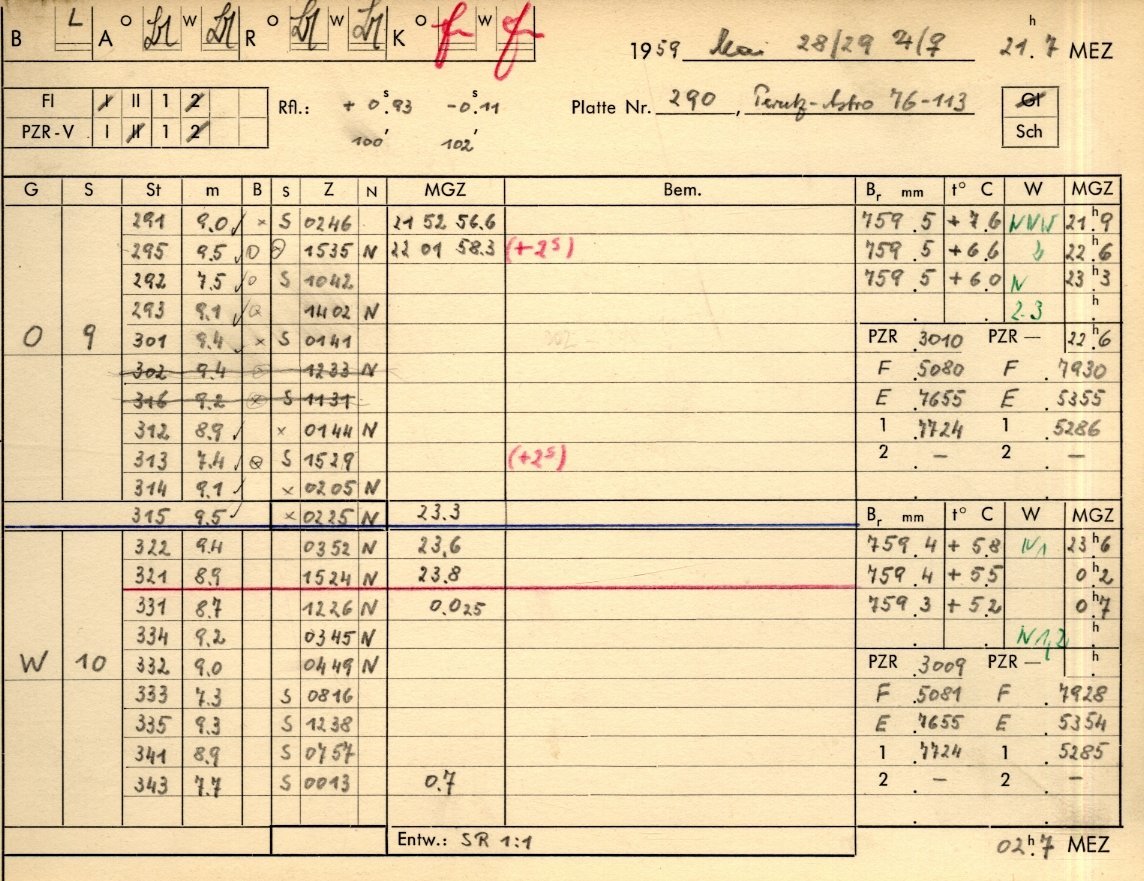 B L A O W R O W K O W
h
1959 Mai 28/29 21.7 MEZ
FI I II 1 2
PZR-V I II 1 2
Rfl.: + 0ˢ.93 -0ˢ.11
100′ 102′
Platte Nr. 290, Perutz-Astro 76-113
Gl
Sch
G S St m B S Z N MGZ Bem. Bᵣ mm t° C W MGZ
291 9.0 ✓ × S 0246 21 52 56.6 759.5 +7.6 NNW 21ʰ.9
295 9.5 ✓ 1535 N 22 01 58.3 (+2ˢ) 759.5 +6.6 22ʰ.6
292 7.5 ✓ S 1042 759.5 +6.0 N 23ʰ.3
293 9.1 ✓ 1402 N 2-3 h
O 9 301 9.4 ✓ × S 0141 PZR .3010 PZR — 22ʰ.6
302 9.4 1233 N F .5080 F .7930
316 9.2 S 1131 E .7655 E .5355
312 8.9 ✓ × 0144 N 1 .7724 1 .5286
313 7.4 ✓ S 1529 (+2ˢ) 2 — 2 —
314 9.1 ✓ × 0205 N
315 9.5 ✓ × 0225 N 23.3 Bᵣ mm t° C W MGZ
322 9.4 0352 N 23.6 759.4 + 5.8 N1 23ʰ.6
321 8.9 1524 N 23.8 759.4 + 5.5 0ʰ.2
331 8.7 1226 N 0.025 759.3 + 5.2 0ʰ.7
334 9.2 0345 N N 1,2 h
W 10 332 9.0 0449 N PZR .3009 PZR — h
333 7.3 S 0816 F .5081 F .7928
335 9.3 S 1238 E .7655 E .5354
341 8.9 S 0757 1 .7724 1 .5285
343 7.7 S 0013 0.7 2 — 2 —
Entw.: SR 1:1 02ʰ.7 MEZ